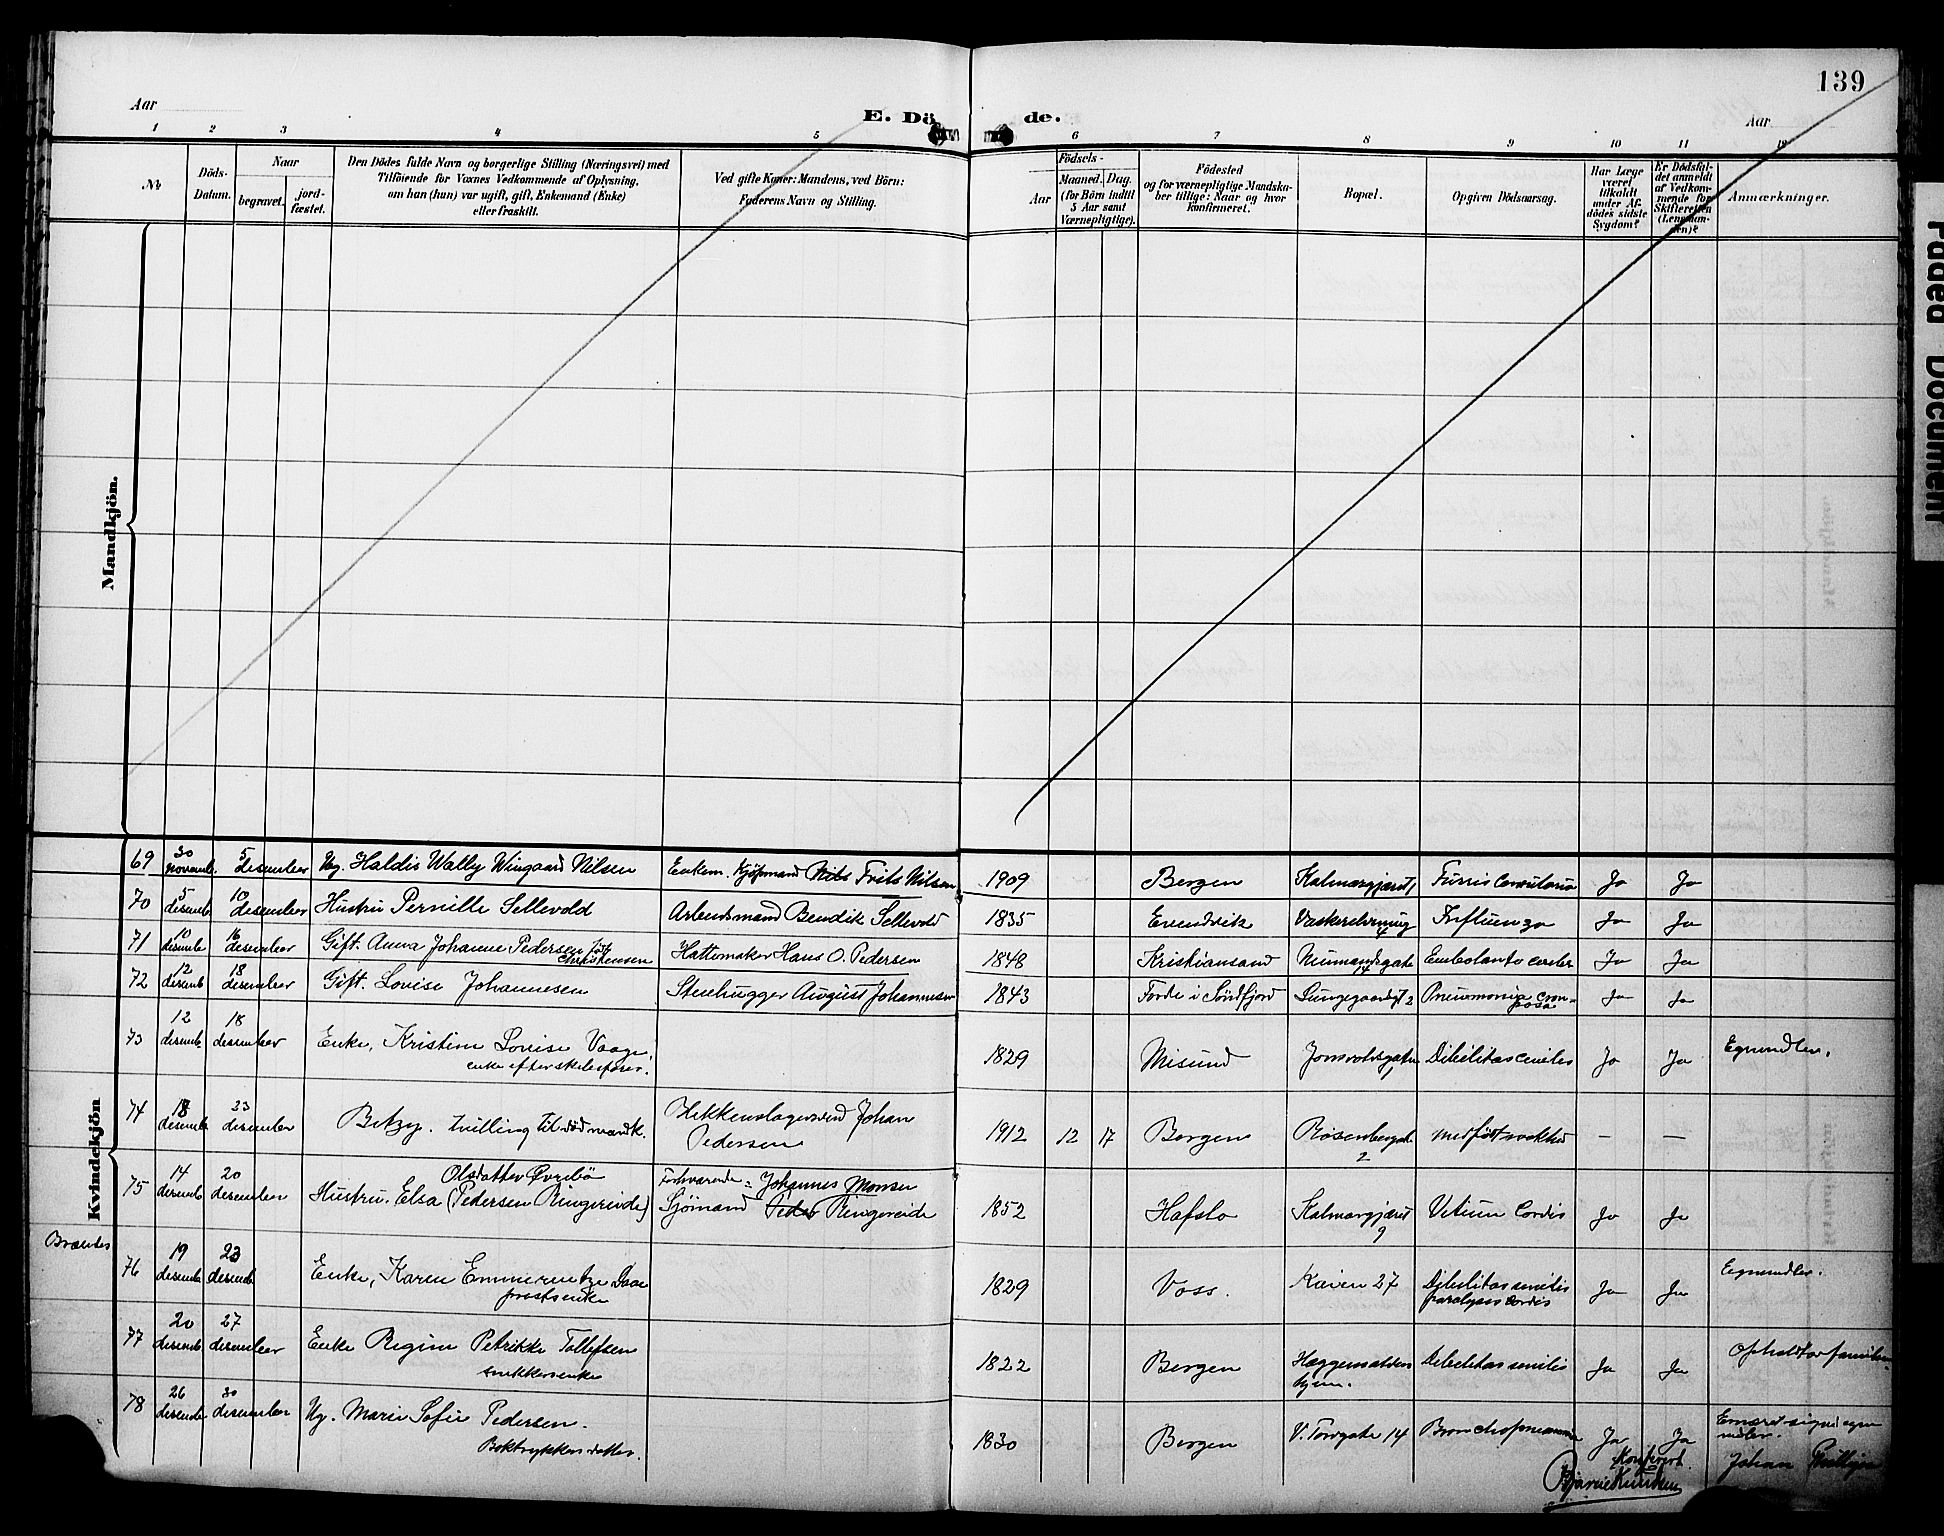 139
Aar
E. Dö de.
Aar
1 2 3 4 5 6 7 8 9 10 11 12
No
Döds-Datum.
Naar
begravet.
jord-fæstet.
Den Dödes fulde Navn og borgerlige Stilling (Næringsvei) med
Tilföiende for Voxnes Vedkommende af Oplysning,
om han (hun) var ugift, gift, Enkemand (Enke)
eller fraskilt.
Ved gifte Koner: Mandens, ved Börn:
Faderens Navn og Stilling.
Födsels-
Aar
Maaned. Dag.
(for Börn indtil
5 Aar samt
Værnepligtige).
Födested
og for værnepligtige Mandska-
ber tillige: Naar og hvor
konfirmeret.
Bopæl.
Opgiven Dödsaarsag.
Har Læge
været
tilkaldt
under Af-
dödes sidste
Sygdom?
Er Dödsfal-
det anmeldt
af Vedkom-
mende for
Skifteretten
(Lensman-
den)?
Anmærkninger.
Mandkjön.
Kvindekjön
69 30 novemb. 5 desember Ug. Haldis Wally Wingaard Nilsen Enkem. Kjøpmand Nils Frits Nilsen 1909 Bergen Kalmargjæret 1 Ja Ja
70 5 desemb 10 desember Hustru Pernille Sellevold Arbeidsmand Bendik Sellevold 1835 Evendvik Influenza Ja Ja
71 10 desemb 16 desember Gift. Anna Johanne Pedersen født Christensen Hattemaker Hans O. Pedersen 1848 Kristiansand Neumandsgate 14 Ja Ja
72 12 desemb 18 desember Gift. Lovise Johannesen Stenhugger August Johannesen 1843 Førde i Søndfjord Lungegaardsgt 2 Pneumonia crouposa Ja Ja
73 12 desemb. 18 desember Enke, Kristine Lovise Vaage.
enke efter skibsfører. 1829 Misund Jonsvoldsgaten 1 Debilitas senilis Ja Ja Egnemidler.
74 18 desemb 23 desember Betzy. tvilling til død mandk. Blikkenslagersvend Johan
Pedersen 1912 12 17 Bergen Rosenbergsgt. 2 medfødt svakhed — —
75 14 desemb 20 desember Olsdatter Øvrebö
Hustru. Elsa (Pedersen Ringereide) Forhvarende: Johannes Monsen
Sjømand Peder Ringereide 1852 Hafslo Kalmargjæret 9 Vitium Cordis Ja Ja
Brændes
76 19 desemb 23 desemb Enke, Karen Emmerentze Daae
prostsenke 1829 Voss. Kaien 27 Debilitas senilis
paralysis cordis Ja Ja Egnemidler.
77 20 desemb 27 desember Enke Regine Petrikke Tollefsen
snekkersenke 1822 Bergen Hæggernatdens
hjem. Debilitas senilis Ja Ja
78 26 desemb 30 desember Ug. Marie Sofie Pedersen.
Boktrykkersdatter. 1830 Bergen V. Torvgate 14 Ja Ja
midler.
Konferert.
Bjarne Knudsen
Johan
Faded Document